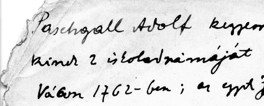 Paschgall Adolf
kimer 2 iskoladrámáját
Vácon 1762-ben ; az egyik